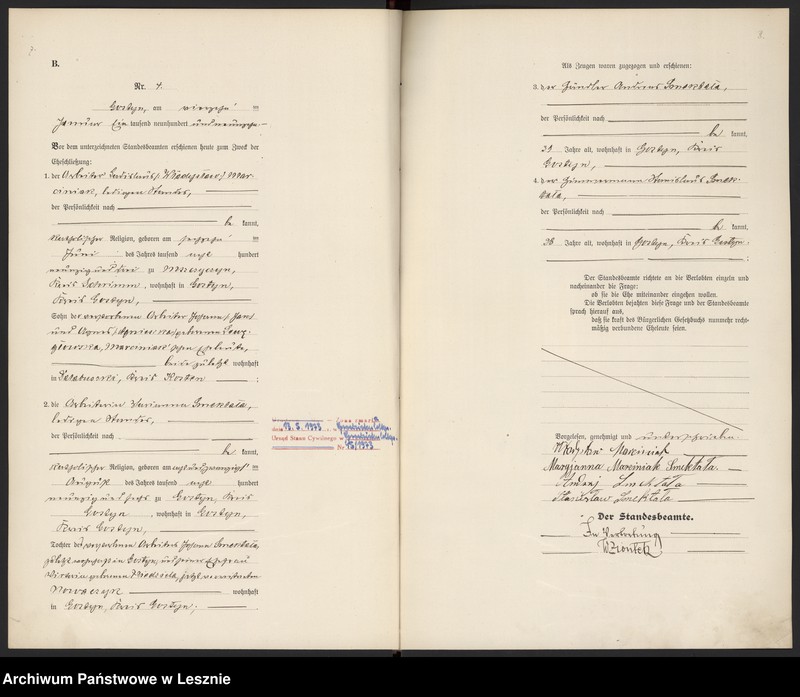 7.
B.
Nr. 4.
Gostyn, am vierzehn ten
Januar Ein tausend neunhundert
Vor dem unterzeichneten Standesbeamten erschienen heute zum Zweck der
Eheschließung:
1. der Arbeiter Ladislaus/Wladyslaw/Mar-
ciniak, ledigen Standes,
der Persönlichkeit nach
be kannt,
katholischer Religion, geboren am ten
Juni des Jahres tausend acht hundert
neunzig und drei zu
Kreis Schrimm, wohnhaft in Gostyn,
Kreis Gostyn,
Sohn des verstorbenen Arbeiter Johann/Jan/
und Agnes/Agnieszka/geborenen
Marciniak'schen Eheleute,
beide zuletzt wohnhaft
in Kreis Kosten ;
2. die Arbeiterin Marianna Smektala,
ledigen Standes,
der Persönlichkeit nach
be kannt,
katholischer Religion, geboren am achtundzwanzigst ten
August des Jahres tausend acht hundert
neunzig und sechs zu Gostyn, Kreis
Gostyn, wohnhaft in Gostyn,
Kreis Gostyn,
Tochter des verstorbenen Arbeiters Johann Smektala,
zuletzt wohnhaft in Gostyn, und seiner Ehefrau
geborenen jetzt verwitweten
Nowaczyk wohnhaft
in Gostyn, Kreis Gostyn;
dnia 13.5.1993
Urząd Stanu Cywilnego w
Nr
8.
Als Zeugen waren zugezogen und erschienen:
3. der Händler Andreas Smektala,
der Persönlichkeit nach
be kannt,
39 Jahre alt, wohnhaft in Gostyn, Kreis
Gostyn,
4. der Zimmermann Stanislaus Smek-
tala,
der Persönlichkeit nach
be kannt,
36 Jahre alt, wohnhaft in Gostyn, Kreis Gostyn
;
Der Standesbeamte richtete an die Verlobten einzeln und
nacheinander die Frage:
ob sie die Ehe miteinander eingehen wollen.
Die Verlobten bejahten diese Frage und der Standesbeamte
sprach hierauf aus,
daß sie kraft des Bürgerlichen Gesetzbuchs nunmehr recht-
mäßig verbundene Eheleute seien.
Vorgelesen, genehmigt und unterschrieben.
Władysław Marciniak
Maryjanna Marciniak Smektała.
Andrzej Smektała
Stanisław Smektała
Der Standesbeamte.
In Vertretung
Archiwum Państwowe w Lesznie